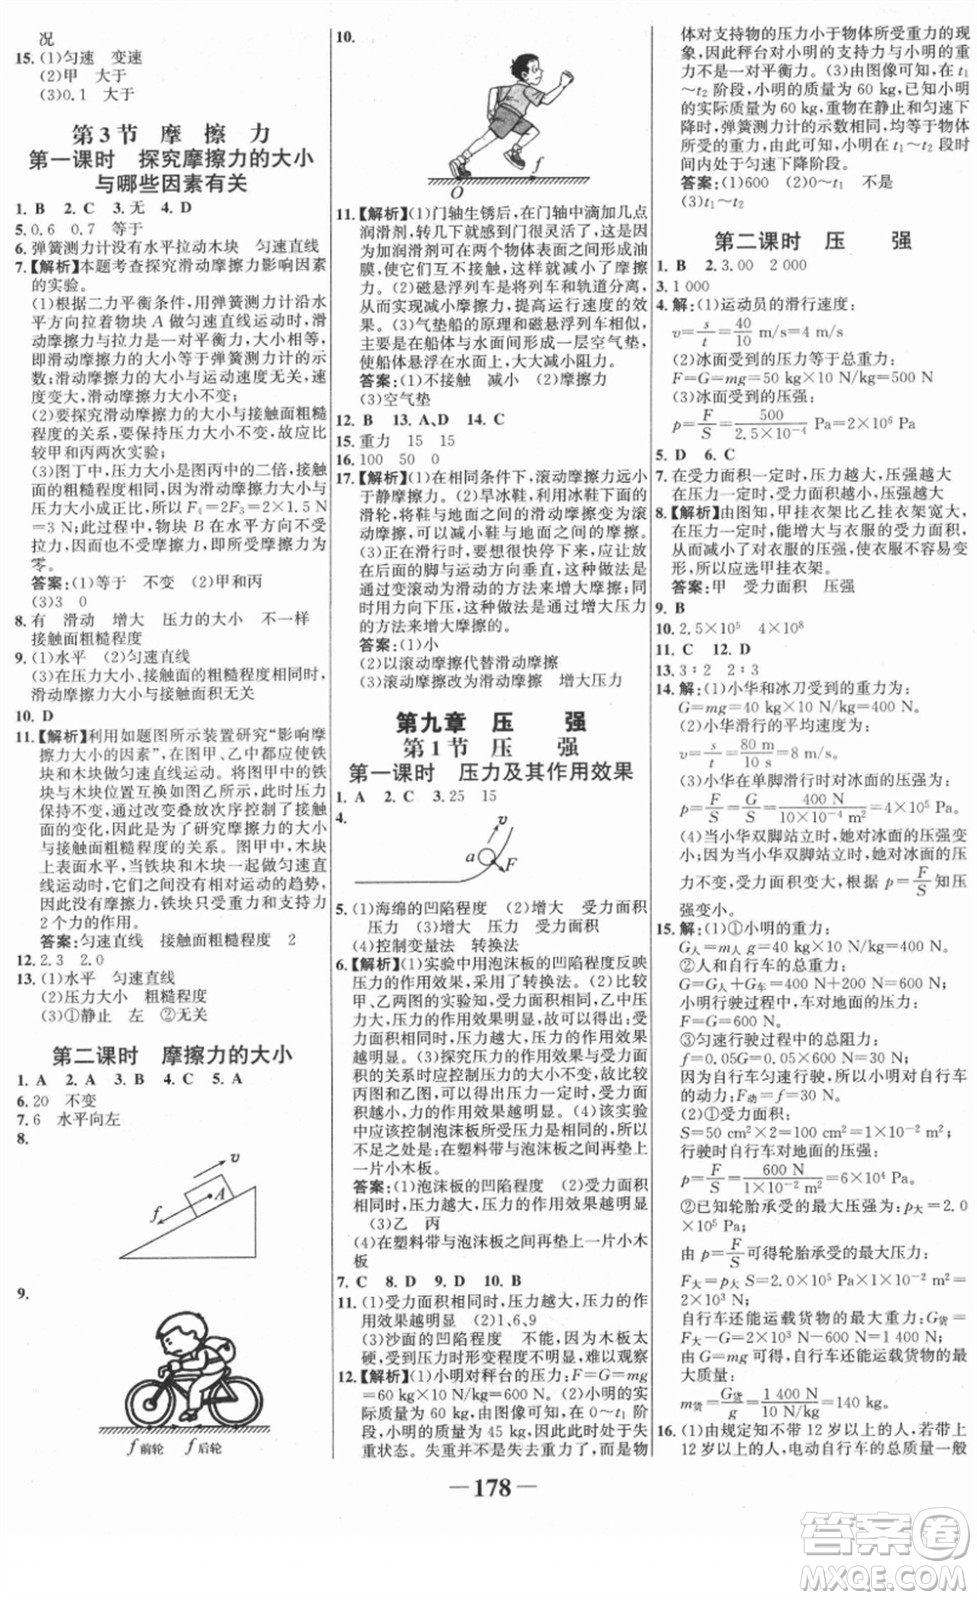 况
15. (1)匀速 变速
(2)甲 大于
(3)0.1 大于
第3节 摩擦力
第一课时 探究摩擦力的大小
与哪些因素有关
1. B 2. C 3. 无 4. D
5. 0.6 0.7 等于
6. 弹簧测力计没有水平拉动木块 匀速直线
7.【解析】本题考查探究滑动摩擦力影响因素
的实验。
(1)根据二力平衡条件,用弹簧测力计沿水
平方向拉着物块 A 做匀速直线运动时,滑
动摩擦力与拉力是一对平衡力,大小相等,
即滑动摩擦力的大小等于弹簧测力计的示
数;滑动摩擦力的大小与运动速度无关,速
度变大时,滑动摩擦力不变。
(2)要探究滑动摩擦力大小与接触面粗糙
程度的关系,要保持压力大小不变,故应比
较甲和丙两次实验;
(3)图丁中的压力是图丙中的二倍,接触面
的粗糙程度相同,因为滑动摩擦力大小与
压力大小成正比,所以 F₄=2F₃=2×1.5 N
=3 N;此时,物块 B 水平方向不受
拉力,因而也不受摩擦力,即所受摩擦力为
零。
答案:(1)等于 不变 (2)甲和丙
(3)3 0
8. 有 滑动 增大 压力的大小 不一样
接触面粗糙程度
9. (1)水平 (2)匀速直线
(3)在压力大小一定时,接触面的粗糙程度
滑动摩擦力大小与接触面积无关
10. D
11.【解析】利用如题图所示装置研究“影响摩
擦力大小的因素”,在图甲、乙中应使铁
块和木块做匀速直线运动。图甲中,将铁
块与木块位置互换如图乙,对水平桌面的压力
保持不变,改变叠放次序控制了接触
面的变化,因此是为了研究摩擦力的大小
与接触面粗糙程度的关系。图甲中,木块
上表面水平,当铁块和木块一起做匀速直
线运动时,它们之间没有相对运动的趋势,
因此没有摩擦力,铁块只受重力和支持力
2 个力的作用。
答案:匀速直线 接触面粗糙程度 2
12. 2.3 2.0
13. (1)水平 匀速直线
(2)压力大小 粗糙程度
(3)①静止 左 ②无关
第二课时 摩擦力的大小
1. A 2. A 3. B 4. C 5. A
6. 20 不变
7. 6 水平向左
8.
v
A
f
9.
f前轮 f后轮
10.
O f
11.【解析】(1)门轴生锈后,在门轴中滴加几点
润滑剂,转动门时,就会感到轻松多了,因
为加润滑剂可在两个物体表面之间形成油
膜,使它们互不接触,从而减小了摩擦
力。(2)磁悬浮列车是在车体与轨道之间
形成一层空气垫,使列车与轨道分离,从而
减小摩擦力,提高运行速度的效
果。(3)气垫船的原理和磁悬浮列车相同,
是在船体与水面之间形成一层空气垫,
使船体悬浮在水面上,大大减小阻力。
答案:(1)不接触 减小 (2)摩擦力
(3)空气垫
12. B 13. A、D 14. C
15. 重力 15 15
16. 100 50 0
17.【解析】(1)在相同条件下,滚动摩擦力远小
于静摩擦力。(2)旱冰鞋,利用冰鞋下面的
滑轮,将鞋与地面之间的滑动摩擦变为滚
动摩擦,来大大减小鞋与地面之间的摩擦。
(3)在滑行时,如果要想停下来,应该使放
在后面的脚与运动方向垂直,这种做法是
变滚动为滑动的方法来增大摩擦的;
同时用力向下压,这种做法是用增大压力
的方法来增大摩擦的。
答案:(1)小
(2)以滚动摩擦代替滑动摩擦
(3)滚动摩擦改为滑动摩擦 增大压力
第九章 压 强
第1节 压 强
第一课时 压力及其作用效果
1. A 2. C 3. 25 15
4.
v
a
F
5. (1)海绵的凹陷程度 (2)增大 受力面积
压力 (3)增大 压力 受力面积
(4)控制变量法 转换法
6.【解析】(1)实验中用泡沫板的凹陷程度反映
压力的作用效果,利用了转换法。(2)比较
甲、乙两图的实验知,受力面积相同,乙中压
力大,压力的作用效果明显,可以得出结论:受
力面积大小不变时,压力越大,压力的作用
效果越明显。(3)探究压力的作用效果与受力面
积的关系时应控制压力的大小不变,故应比较
丙图和乙图,可以得出结论:压力大小一定时,
受力面积越小,压力作用效果越明显。(4)该实验
中应该控制泡沫板的凹陷程度明显,若泡沫板的
不足之处是在塑料带与泡沫板之间应垫上
一片小木板。
答案:(1)泡沫板的凹陷程度 (2)受力面积
大小不变时,压力越大,压力的作用效果越明显
(3)乙 丙
(4)在塑料带与泡沫板之间再垫上一片小木
板
7. C 8. D 9. D 10. B
11. (1)受力面积相同时,压力越大,压力的作
用效果越明显 (2)1、6、9
(3)沙面的凹陷程度 不能,因为木板太
硬,受到压力时形变不明显,难以观察
12.【解析】(1)小明对秤台的压力:F=G=mg
=60 kg×10 N/kg=600 N。(2)小明的实
际质量为 60 kg,在 0～t₁ 阶段,小明的
质量为 45 kg,小于实际质量,此时处于失
重状态。失重并不是失去重力了,而是物
体对支持物的压力小于物体所受重力的现
象,因此秤台对小明的支持力与小明的重
力不是一对平衡力。(3)由图像可知,在 t₁
～t₂ 阶段,小明的质量为 60 kg,与小明
的实际质量 60 kg 相等,重物在静止和匀速下
降时,弹簧测力计的示数都等于物体所
受的重力,所以由图可知,在 t₁～t₂ 段时
间内处于匀速下降阶段。
答案:(1)600 (2)0～t₁ 不是
(3)t₁～t₂
第二课时 压 强
1. B 2. 3.00 2 000
3. 1 000
4. 解:(1)运动员的滑行速度:
v=s/t=40/10 m/s=4 m/s
(2)冰面受到的压力等于总重力:
F=G=mg=50 kg×10 N/kg=500 N
(3)冰面受到的压强:
p=F/S=500/(2.5×10⁻⁴) Pa=2×10⁶ Pa
5. D 6. C
7. 在受力面积一定时,压力越大,压强越大
在压力一定时,受力面积越小,压强越大
8.【解析】由图知,甲挂衣架比乙挂衣架宽大,在
压力一定时,能增大与衣服的受力面积,
减小对衣服的压强,使衣服不容易变
形,所以应选用甲挂衣架。
答案:甲 受力面积 压强
9. B
10. 2.5×10⁵ 4×10⁸
11. C 12. D
13. 3∶2 2∶3
14. 解:(1)小华和冰刀受到的重力为:
G=mg=40 kg×10 N/kg=400 N
(2)小华滑行的平均速度为:
v=s/t=80 m/10 s=8 m/s。
(3)小华在单脚滑行时对冰面的压强:
p=F/S=G/S=400 N/(10×10⁻⁴ m²)=4×10⁵ Pa。
(4)当小华双脚站立时,她对冰面的压强
变小;当小华双脚站立时,她对冰面的压
力不变,受力面积变大,根据 p=F/S 知压
强变小。
15. 解:(1)①小明的重力为:
G人=m人 g=40×10 N/kg=400 N。
②人和自行车的总重力:
G=G人+G车=400 N+200 N=600 N,
小明行驶过程中,车对地面的压力:
F=G=600 N。
③匀速行驶过程中,车对地面的总阻力:
f=0.05G=0.05×600 N=30 N,
自行车匀速行驶,所以小明对自行车
的动力:F动=f=30 N。
(2)①受力面积:
S=50 cm²×2=100 cm²=1×10⁻² m²,
行驶时自行车对地面的压强:
p=F/S=600 N/(1×10⁻² m²)=6×10⁴ Pa。
②已知轮胎承受的最大压强为:p大=2.0
×10⁵ Pa;
由 p=F/S 可得轮胎承受的最大压力:
F大=p大 S=2.0×10⁵ Pa×1×10⁻² m²=2×10³ N,
自行车还能运载货物的最大重力:G货=
F大-G=2×10³ N-600 N=1 400 N;
由 G=mg 可得,自行车还能运载货物的最
大质量:
m货=G货/g=1 400 N/(10 N/kg)=140 kg。
16. (1)由规定知不带 12 岁以上的人,若带上
12 岁以上的人,电动自行车的总质量一般
—178—
答案圈
MXQE.COM